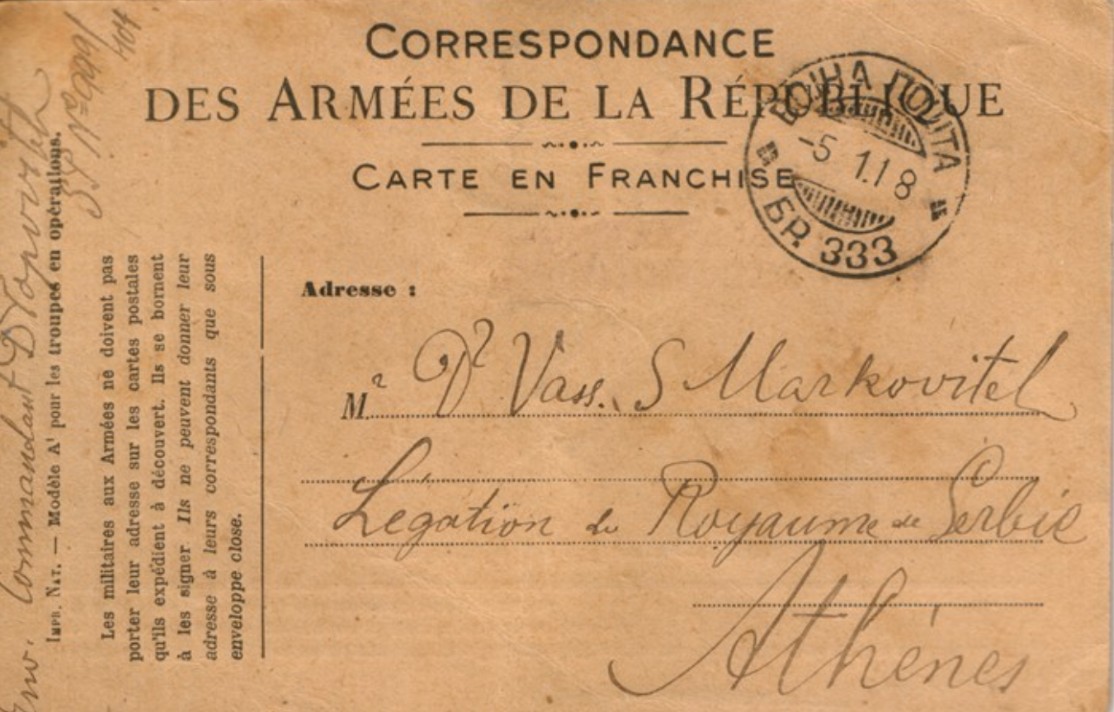 CORRESPONDANCE
DES ARMÉES DE LA RÉPUBLIQUE
CARTE EN FRANCHISE
ВОЈНА ПОШТА
-5 1.18
БР. 333
Adresse :
Mr Dr Vass. S Markovitch
Légation de Royaume de Serbie
Athénes
Les militaires aux Armées ne doivent pas
porter leur adresse sur les cartes postales
qu'ils expédient à découvert. Ils se bornent
à les signer Ils ne peuvent donner leur
adresse à leurs correspondants que sous
enveloppe close.
IMPR. NAT. — Modèle A¹ pour les troupes en opérations.
Commandant